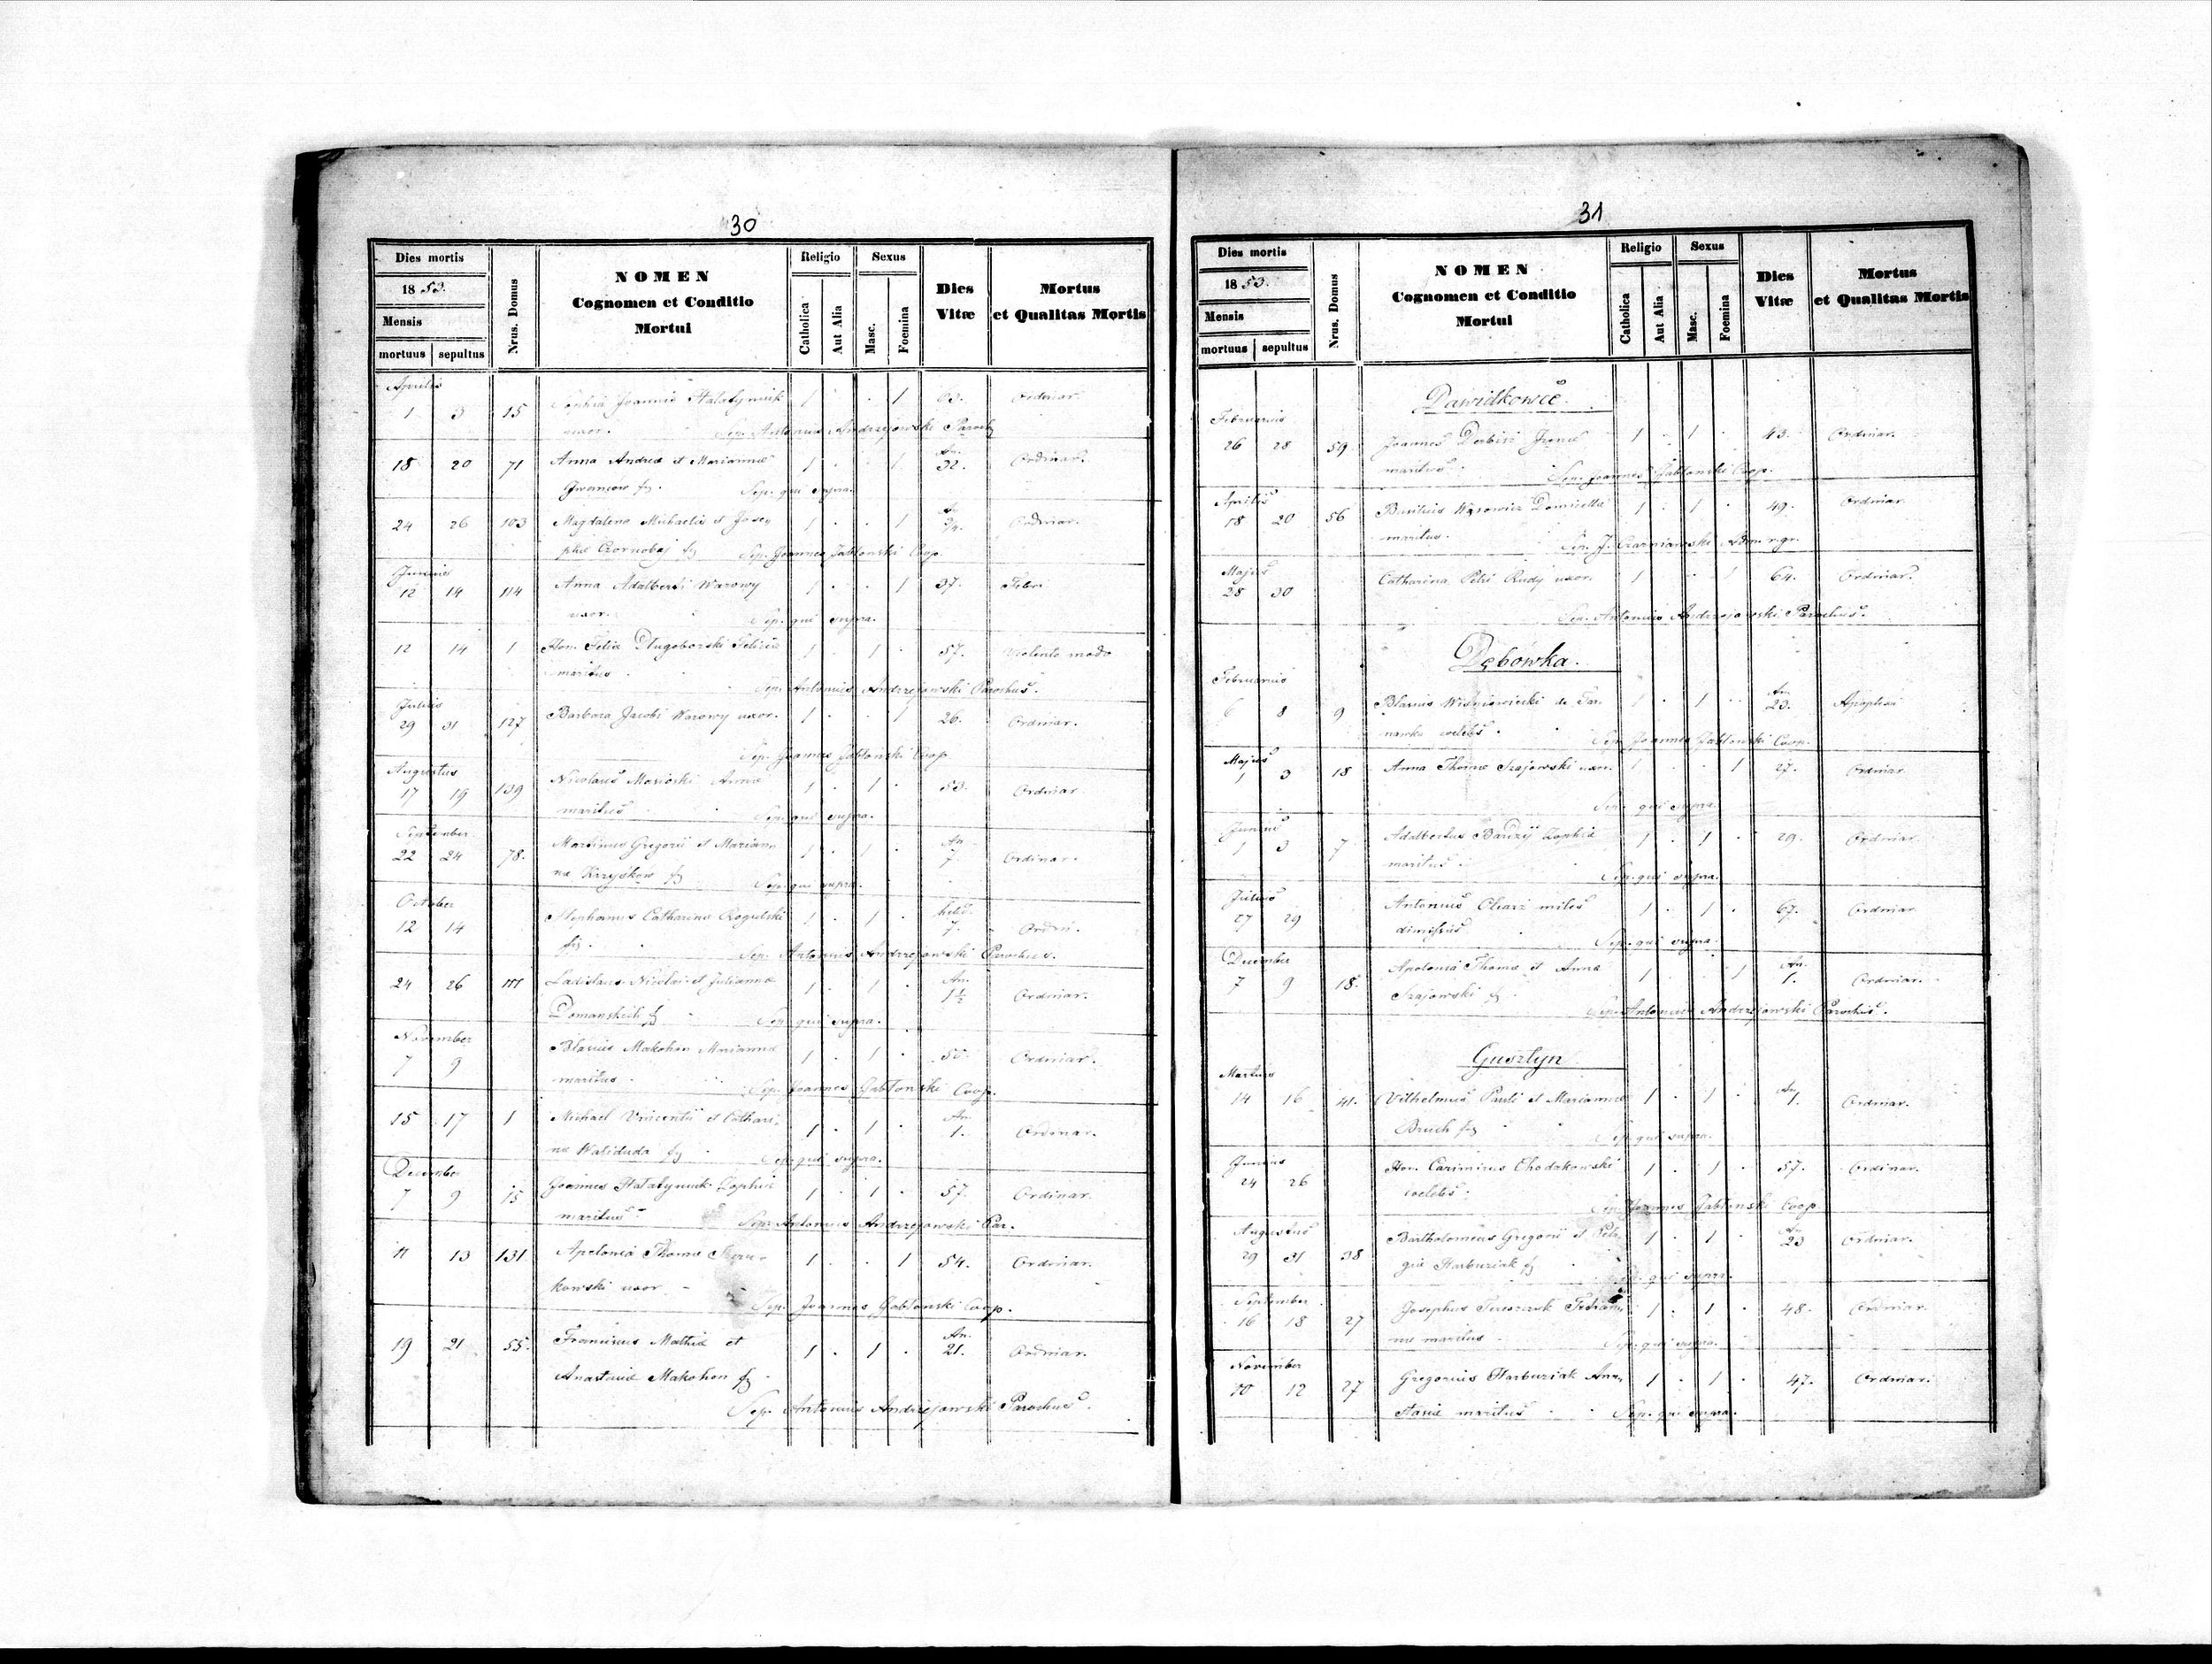 30
Dies mortis
1853.
Mensis
mortuus sepultus
Nrus. Domus
NOMEN
Cognomen et Conditio
Mortui
Religio
Catholica
Aut Alia
Sexus
Masc.
Foemina
Dies
Vitæ
Mortus
et Qualitas Mortis
Aprilis
1 3 15 Sophia Joannis 1 . . 1 63. Ordinar.
uxor. Sep. Antonius Andrzejowski Paroch
18 20 71 Anna Andreæ et Mariannæ 1 . . 1 An. 32. Ordinar.
Iwancow fg. Sep. qui supra.
24 26 103 Magdalena Michaelis et Jose, 1 . . 1 Ordinar.
phæ Czornobaj fg Sep. Joannes Jabłonski Coop.
Junius
12 14 114 Anna Adalberti Warowy 1 . . 1 37. Febr.
uxor. Sep. qui supra.
12 14 1 Hon. Felix Długoborski Feliciæ 1 . 1 . 57. Violento modo
maritus. Sep. Antonius Andrzejowski Parochus.
Julius
29 31 127 Barbara Jacobi Warowy uxor. 1 . . 1 26. Ordinar.
Sep. Joannes Jabłonski Coop
Augustus
17 19 139 Nicolaus Annæ 1 . 1 . 53. Ordinar
maritus Sep. qui supra.
September
22 24 78. Martinus Gregorii et Marian, 1 . 1 . An 7. Ordinar.
næ fg Sep. qui supra.
October
12 14 Stephanus Catharinæ Rogulski 1 . 1 . 7. Ordin.
fg. Sep. Antonius Andrzejowski Parochus.
24 26 111 Ladislaus Nicolai et Juliannæ 1 . 1 . An. 1½ Ordinar.
Domanskich fg Sep. qui supra.
November
7 9 Blasius Makohon Mariannæ 1 . 1 . 50. Ordinar.
maritus. Sep. Joannes Jabłonski Coop.
15 17 1 Michael Vincentii et Cathari, 1 . 1 . An. 1. Ordinar.
næ Waliduda fg Sep. qui supra.
December
7 9 15 Joannes Sophiæ 1 . 1 . 57. Ordinar.
maritus Sep. Antonius Andrzejowski Par.
11 13 131 Apolonia Thomæ 1 . . 1 54. Ordinar.
kowski uxor Sep. Joannes Jabłonski Coop.
19 21 55. Franciscus Mathiæ et 1 . 1 . An. 21. Ordinar.
Anastasiæ Makohon fg.
Sep. Antonius Andrzejowski Parochus.
31
Dies mortis
1853.
Mensis
mortuus sepultus
Nrus. Domus
NOMEN
Cognomen et Conditio
Mortui
Religio
Catholica
Aut Alia
Sexus
Masc.
Foemina
Dies
Vitæ
Mortus
et Qualitas Mortis
Dawidkowce.
Februarius
26 28 59 Joannes Derbisz Irenæ 1 . 1 . 43. Ordinar.
maritus. Sep. Joannes Jabłonski Coop.
Aprilis
18 20 56 Basilius Wąsowicz 1 . 1 . 49. Ordinar.
maritus. Sep. J. Czarniawski
Majus
28 30 Catharina Petri Rudy uxor. 1 . . 1 64. Ordinar.
Sep. Antonius Andrzejowski Parochus.
Dębówka.
Februarius
6 8 9 Blasius Wiśniowiecki de Tar, 1 . 1 . An 23. Apoplexi
nawka cælebs. Sep. Joannes Jabłonski Coop.
Majus
1 3 18 Anna Thomæ Szajowski uxor. 1 . . 1 27. Ordinar.
Sep. qui supra.
Junius
1 3 7 Adalbertus Sophiæ 1 . 1 . 29. Ordinar
maritus. Sep. qui supra.
Julius
27 29 Antonius Olearz miles 1 . 1 . 67. Ordinar
dimissus Sep. qui supra.
December
7 9 18. Apolonia Thomæ et Annæ 1 . . 1 An. 1. Ordinar.
Szajowski fg. Sep. Antonius Andrzejowski Parochus.
Gusztyn
Martius
14 16 41. Vilhelmus Pauli et Mariannæ 1 . 1 . An. 1. Ordinar.
Bruch fg Sep. qui supra.
Junius
24 26 Hon. Casimirus Chodakowski 1 . 1 . 57. Ordinar.
cælebs. Sep. Joannes Jabłonski Coop
Augustus
29 31 38 Bartholomeus Gregorii et Pela, 1 . 1 . An 23 Ordinar.
giæ Harbuziak fg Sep. qui supra.
September
16 18 27 Josephus 1 . 1 . 48. Ordinar.
næ maritus. Sep. qui supra.
November
10 12 27 Gregorius Harbuziak Ana, 1 . 1 . 47. Ordinar.
stasiæ maritus Sep. qui supra.